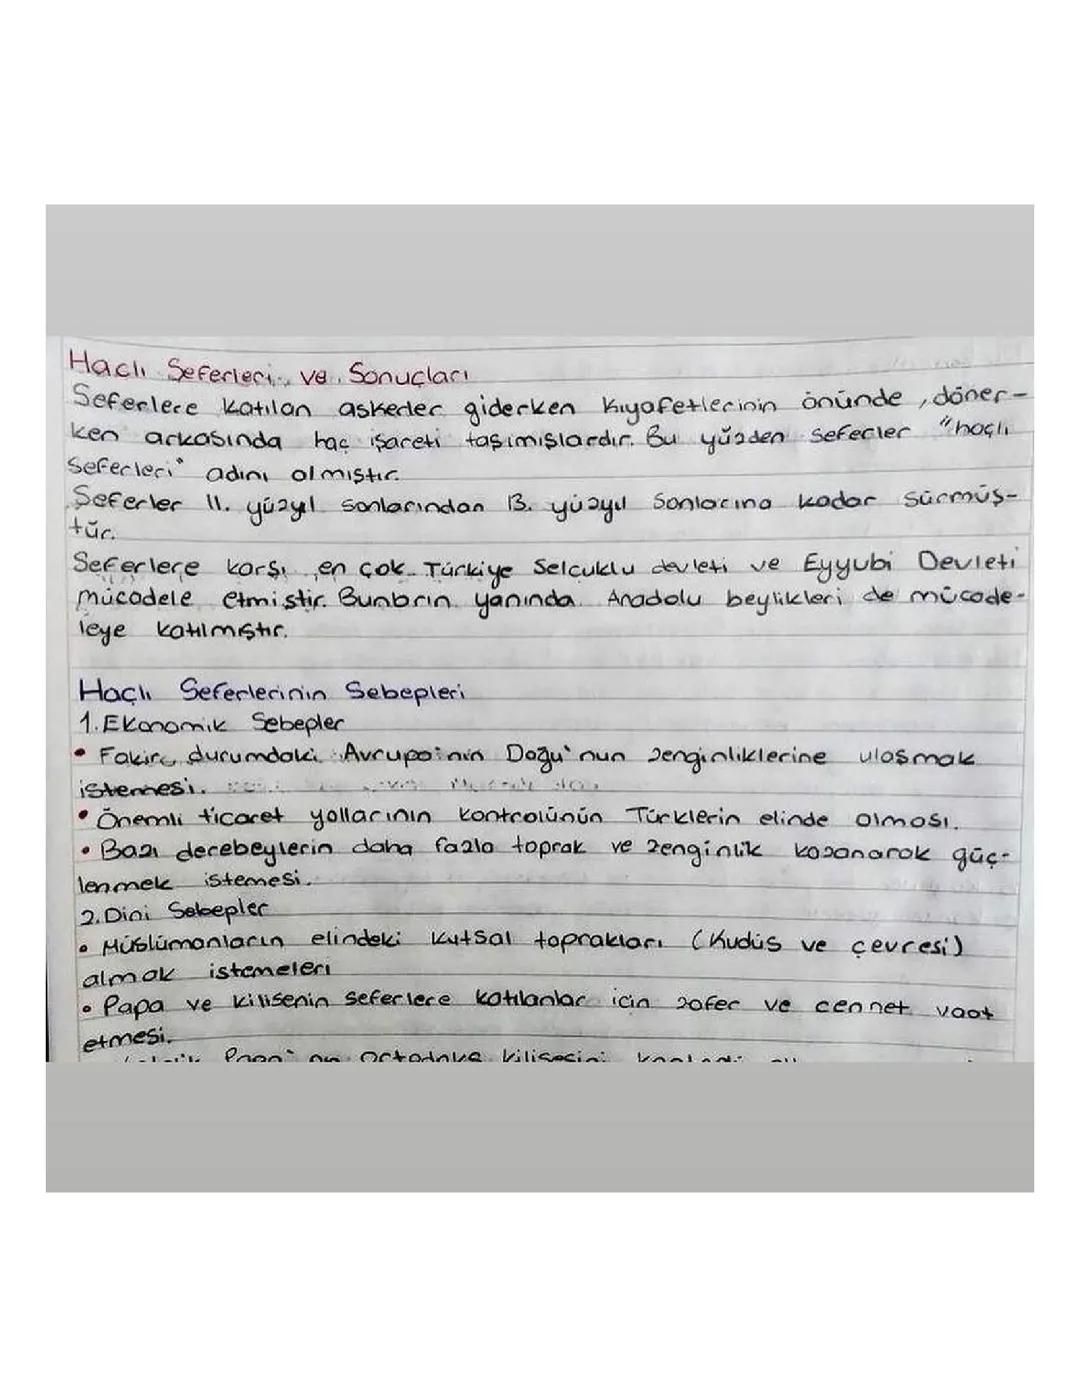 Haçlı Seferleri ve Sonuçları
Seferlere katılan askerler giderken kıyafetlerinin önünde, döner-
ken arkasında haç işareti taşımışlardır. Bu yüzden seferler "haçlı
seferleri" adını almıştır.
Seferler 11. yüzyıl sonlarından 13. yüzyıl sonlarına kadar sürmüş-
tür.
Seferlere karşı en çok Türkiye Selçuklu devleti ve Eyyubi Devleti
mücadele etmiştir. Bunların yanında Anadolu beylikleri de mücade-
leye katılmıştır.
Haçlı Seferlerinin Sebepleri
1. Ekonomik Sebepler
• Fakir durumdaki Avrupa'nın Doğu'nun zenginliklerine ulaşmak
istemesi.
• Önemli ticaret yollarının kontrolünün Türklerin elinde olması.
• Bazı derebeylerin daha fazla toprak ve zenginlik kazanarak güç-
lenmek istemesi.
2. Dini Sebepler
• Müslümanların elindeki kutsal toprakları (Kudüs ve çevresi)
almak istemeleri
• Papa ve kilisenin seferlere katılanlar için zafer ve cennet vaat
etmesi.
Papa'nın Ortodoks kilisesini